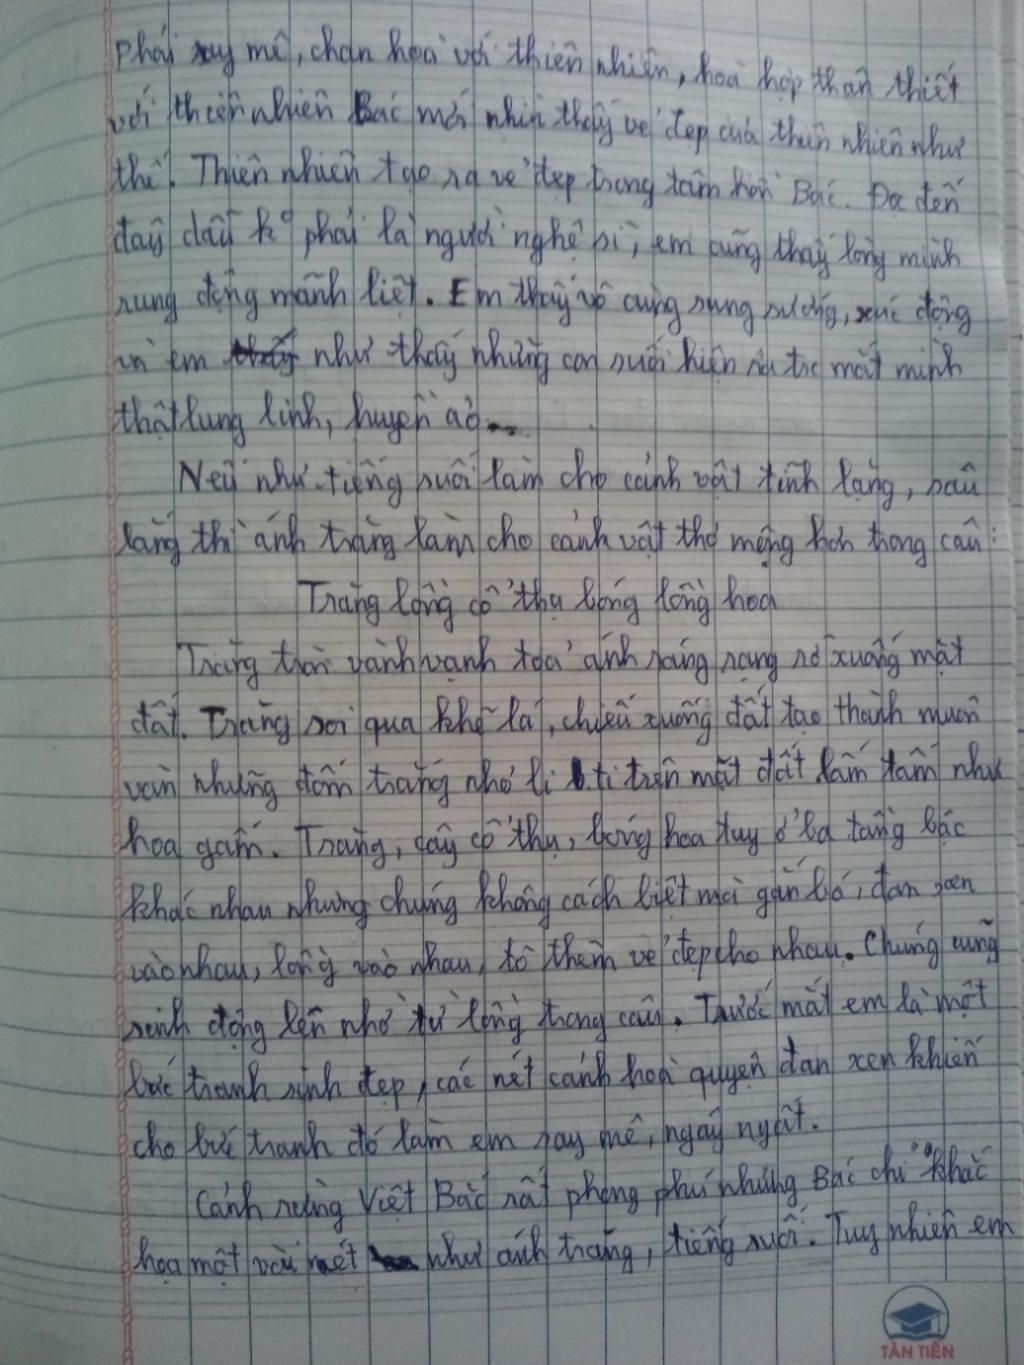 phải say mê, chan hoà với thiên nhiên, hoà hợp thân thiết
với thiên nhiên Bác mới nhìn thấy vẻ đẹp của thiên nhiên như
thế. Thiên nhiên tạo ra vẻ đẹp trong tâm hồn Bác. Đọc đến
đây dẫu k° phải là người nghệ sĩ, em cũng thấy lòng mình
rung động mãnh liệt. Em thấy vô cùng sung sướng, xúc động
và em như thấy những con suối hiện ra trc mắt mình
thật lung linh, huyền ảo...
Nếu như tiếng suối làm cho cảnh vật tĩnh lặng, sâu
lắng thì ánh trăng làm cho cảnh vật thơ mộng hơn trong câu:
Trăng lồng cổ thụ bóng lồng hoa
Trăng tròn vành vạnh toả ánh sáng rạng rỡ xuống mặt
đất. Trăng soi qua khẽ lá, chiếu xuống đất tạo thành muôn
vàn những đốm trắng nhỏ li ti trên mặt đất lấm tấm như
hoa gấm. Trăng, cây cổ thụ, bóng hoa tuy ở ba tầng bậc
khác nhau nhưng chúng không cách biệt mà gắn bó, đan xen
vào nhau, lồng vào nhau, tô thêm vẻ đẹp cho nhau. Chúng cũng
sinh động lên nhờ từ lồng trong câu. Trước mắt em là một
bức tranh sinh đẹp, các nét cảnh hoà quyện đan xen khiến
cho bức tranh đó làm em say mê, ngây ngất.
Cảnh rừng Việt Bắc rất phong phú nhưng Bác chỉ khắc
hoạ một vài nét như ánh trăng, tiếng suối. Tuy nhiên em
TÂN TIẾN